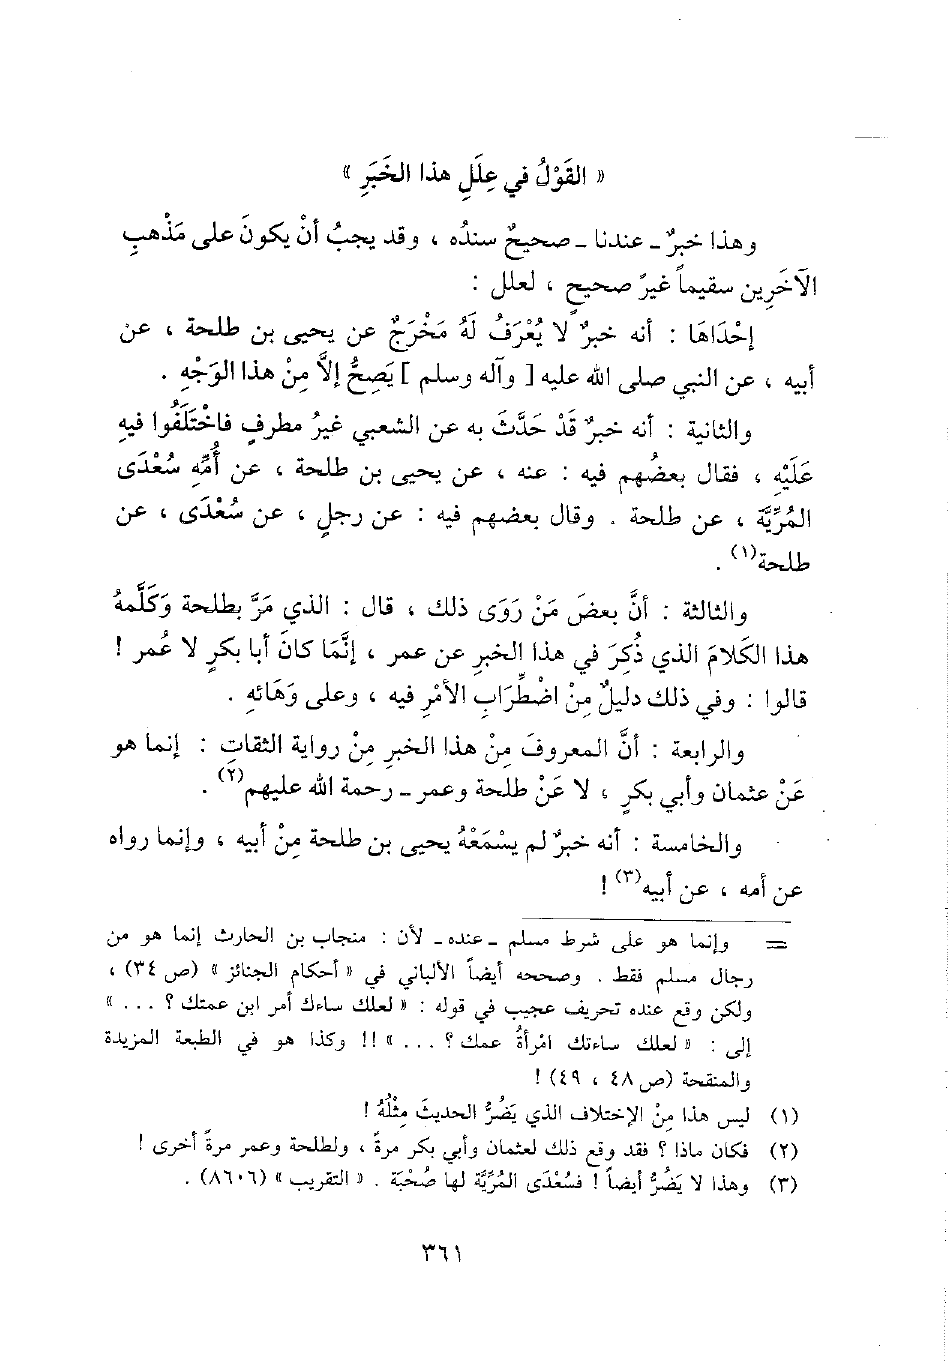 « القَوْلُ في عِلَلِ هذا الخَبَرِ »
وهذا خبرٌ - عندنا - صحيحٌ سندُه ، وقد يجبُ أنْ يكونَ على مَذْهبِ
الآخَرِين سقيماً غيرَ صحيحٍ ، لعلل :
إحْدَاهَا : أنه خبرٌ لا يُعْرَفُ لَهُ مَخْرَجٌ عن يحيى بن طلحة ، عن
أبيه ، عن النبي صلى الله عليه [ وآله وسلم ] يَصِحُّ إلاَّ مِنْ هذا الوَجْهِ .
والثانية : أنه خبرٌ قَدْ حَدَّثَ به عن الشعبي غيرُ مطرفٍ فاخْتَلَفُوا فيهِ
عَلَيْهِ ، فقال بعضُهم فيه : عنه ، عن يحيى بن طلحة ، عن أُمِّهِ سُعْدَى
المُرِّيَّة ، عن طلحة . وقال بعضهم فيه : عن رجلٍ ، عن سُعْدَى ، عن
طلحة(١) .
والثالثة : أنَّ بعضَ مَنْ رَوَى ذلك ، قال : الذي مَرَّ بطلحة وَكَلَّمهُ
هذا الكَلامَ الذي ذُكِرَ في هذا الخبرِ عن عمر ، إنَّمَا كانَ أبا بكرٍ لا عُمر !
قالوا : وفي ذلك دليلٌ مِنْ اضْطِّرَابِ الأمْرِ فيه ، وعلى وَهَائهِ .
والرابعة : أنَّ المعروفَ مِنْ هذا الخبرِ مِنْ رواية الثقاتِ : إنما هو
عَنْ عثمان وأبي بكرٍ ، لا عَنْ طلحة وعمر - رحمة الله عليهم(٢) .
والخامسة : أنه خبرٌ لم يسْمَعْهُ يحيى بن طلحة مِنْ أبيه ، وإنما رواه
عن أمه ، عن أبيه(٣) !
= وإنما هو على شرط مسلم - عنده - لأن : منجاب بن الحارث إنما هو من
رجال مسلم فقط . وصححه أيضاً الألباني في « أحكام الجنائز » (ص ٣٤) ،
ولكن وقع عنده تحريف عجيب في قوله : « لعلك ساءك أمر ابن عمتك ؟ . . . »
إلى : « لعلك ساءتك امْرأةُ عمك ؟ . . . » !! وكذا هو في الطبعة المزيدة
والمنقحة (ص ٤٨ ، ٤٩) !
(١) ليس هذا مِنْ الإختلاف الذي يَضُرُّ الحديثَ مِثْلُهُ !
(٢) فكان ماذا ؟ فقد وقع ذلك لعثمان وأبي بكر مرةً ، ولطلحة وعمر مرةً أخرى !
(٣) وهذا لا يَضُرُّ أيضاً ! فسُعْدَى المُرِّيَّة لها صُحْبَة . « التقريب » (٨٦٠٦) .
٣٦١